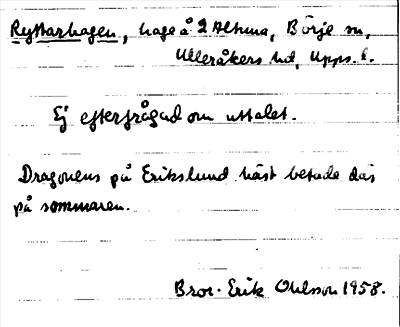 Ryttarhagen, hage å 2 Altuna, Börje sn,
Ulleråkers hd, Upps. l.
Ej efterfrågad om uttalet.
Dragonens på Erikslund häst betade där
på sommaren.
Bror-Erik Ohlsson 1958.